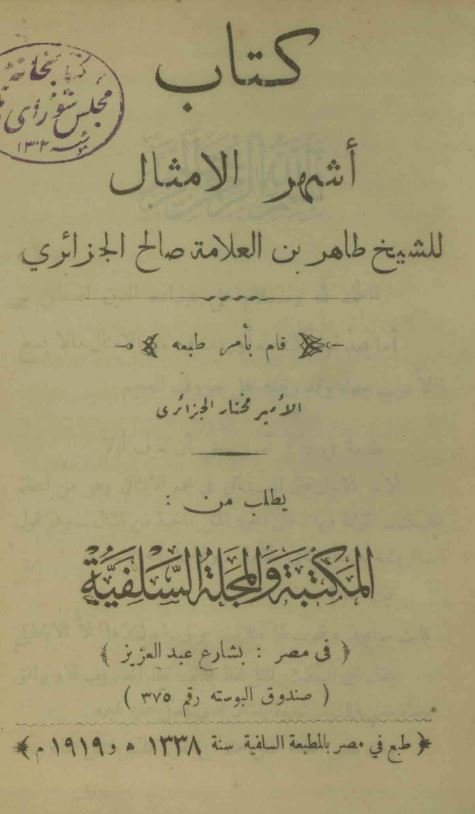 كتاب
كتابخانة
مجلس شورای
١٣٠٢
أشهر الامثال
للشيخ طاهر بن العلامة صالح الجزائري
قام بأمر طبعه
الأمير مختار الجزائرى
يطلب من :
المكتبة والمجلة السلفية
( فى مصر : بشارع عبد العزيز )
( صندوق البوسته رقم ٣٧٥ )
طبع في مصر بالمطبعة السلفية سنة ١٣٣٨ ه و ١٩١٩ م